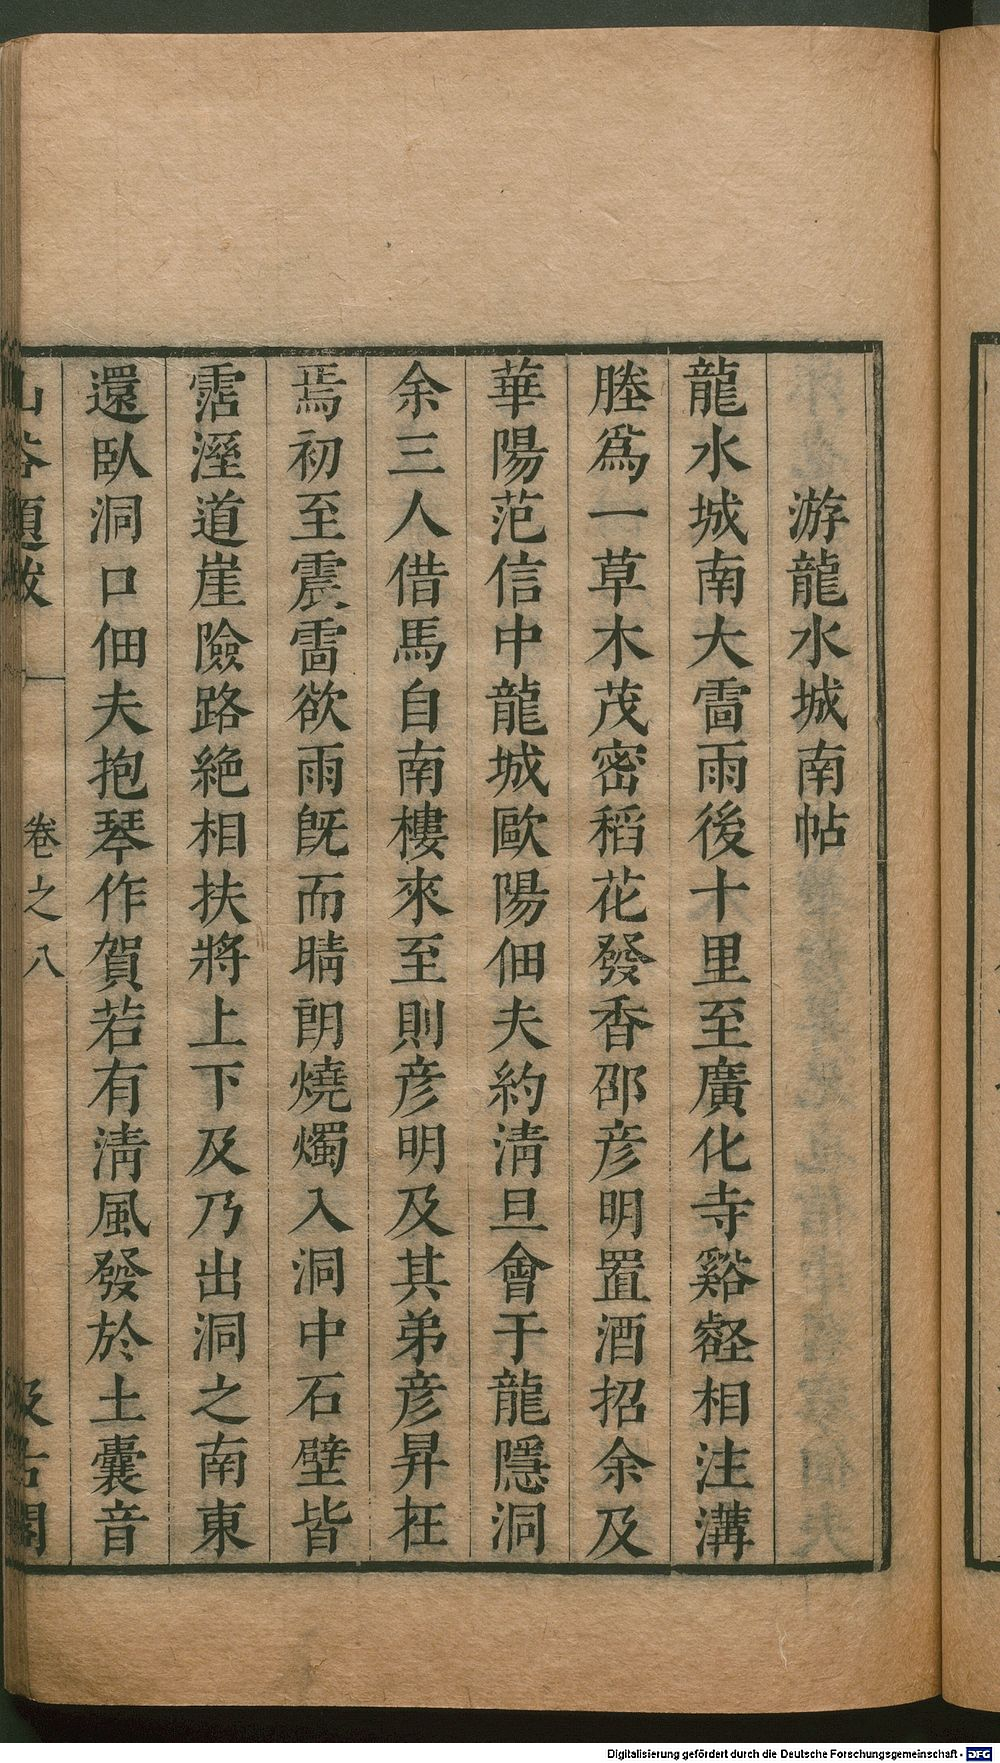 游龍水城南帖
龍水城南大雷雨後十里至廣化寺谿壑相注溝
塍爲一草木茂密稻花發香邵彦明置酒招余及
華陽范信中龍城歐陽佃夫約淸旦會于龍隱洞
余三人借馬自南樓來至則彦明及其弟彦昇在
焉初至震雷欲雨旣而晴朗燒燭入洞中石壁皆
霑溼道崖險路絶相扶將上下及乃出洞之南東
還臥洞口佃夫抱琴作賀若有淸風發於土囊音
山谷題跋 卷之八 汲古閣
Digitalisierung gefördert durch die Deutsche Forschungsgemeinschaft - DFG